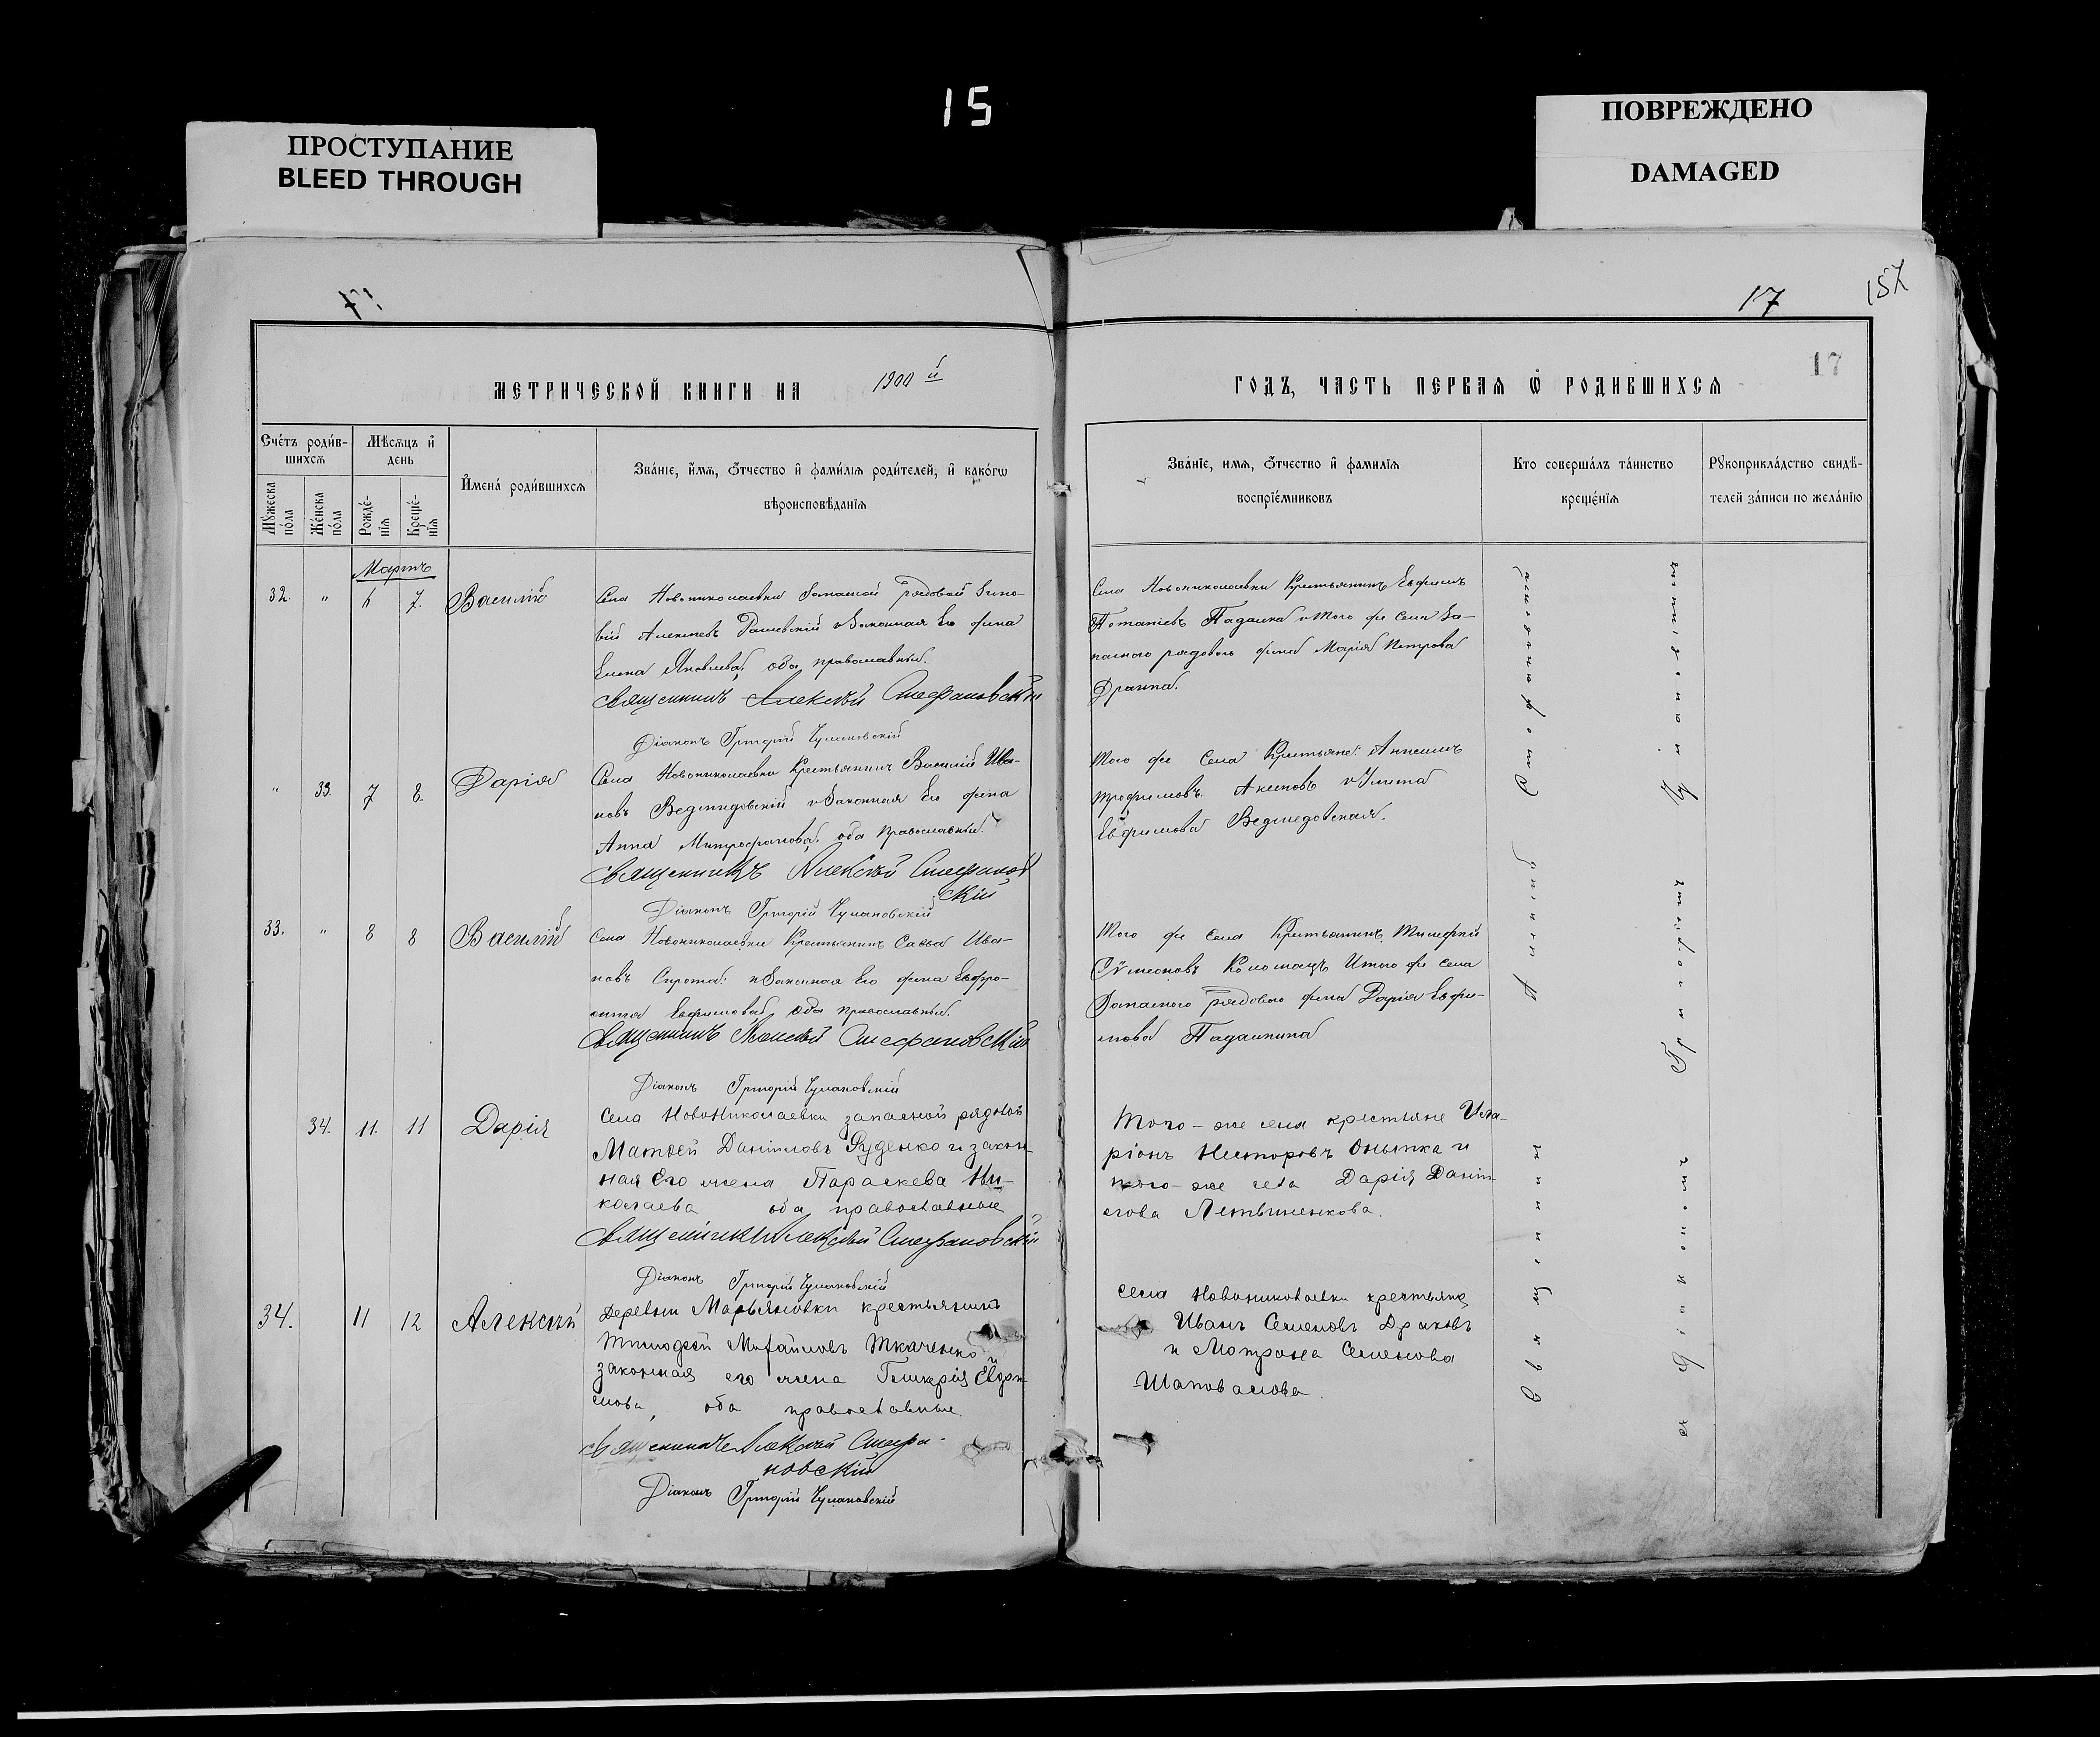 15
ПРОСТУПАНИЕ
BLEED THROUGH
ПОВРЕЖДЕНО
DAMAGED
17
157
17
МЕТРИЧЕСКОЙ КНИГИ НА 1900 й
ГОДЪ, ЧАСТЬ ПЕРВАЯ Ѡ РОДИВШИХСЯ
Счéтъ роди́в-
шихсѧ
Мѣ́сѧцъ и҆
день
Мꙋ́жеска
по́ла
Же́нска
по́ла
Рожде́-
нїѧ
Креще́-
нїѧ
И҆мена̀ роди́вшихсѧ
Зва́нїе, и҆́мѧ, ѻ҆́тчество и҆ фами́лїѧ роди́телей, и҆ како́гѡ
вѣроисповѣ́данїѧ
Зва́нїе, имѧ, ѻ҆́тчество и҆ фамилїѧ
воспрїе́мниковъ
Кто соверша́лъ та́инство
креще́нїѧ
Рꙋкоприкла́дство свидѣ́-
телей за́писи по жела́нїю
Мартъ
32. " 6 7. Василій
Села Новониколаевки Запасной рядовой Зино-
вій Алексѣевъ Рашевскій и Законная Его жена
Елена Яковлева, оба православный.
Священникъ Алексѣй Стефановскій
Діаконъ Григорій Чулановскій
Села Новониколаевки Крестьянинъ Евфимъ
Потапіевъ Падалка и того же Села За-
пасного рядового жена Марія Петрова
" 33. 7 8. Дарія
Села Новониколаевки Крестьянинъ Василій Ива-
новъ Ведмидовскій и Законная Его жена
Анна Митрофанова, оба православный.
Священникъ Алексѣй Стефанов
скій
Діаконъ Григорій Чулановскій
Того же Села Крестьяне:
Трофимовъ Аксеновъ и Улита
Евфимова Ведмедовская.
33. " 8 8 Василій
Села Новониколаевки Крестьянинъ Савва Ива-
новъ Сирота и Законная Его жена Евфро-
синія Евфимова, Оба православный.
Священникъ Алексѣй Стефановскій
Діаконъ Григорій Чулановскій
Того же Села Крестьянинъ Тимофей
Сумеоновъ Коломацъ И того же Села
Запасного рядового жена Дарія Евфи-
мова Падалкина
34. 11. 11 Дарія
Села НовоНиколаевки запасной рядовой
Матѳей Даніиловъ Руденко и закон-
ная Его жена Параскева Ни-
колаева оба православные
Священникъ Алексѣй Стефановскій
Діаконъ Григорій Чулановскій
Того-же села крестьяне Ила-
ріонъ Несторовъ Онипка и
того-же села Дарія Даніи-
лова
34. 11 12 Алексѣй
Деревни Марьяновки крестьянинъ
Тимофей Михайловъ Ткаченко и
законная его жена Гликерія
оба православные
Священникъ Алексѣй Стефа-
новскій
Діаконъ Григорій Чулановскій
Села Новониколаевки крестьяне
Иванъ Семеновъ
и Матрона Семенова
Шаповалова.
Священникъ Алексѣй Стефановскій
съ Діакономъ Григоріемъ Чулановскимъ